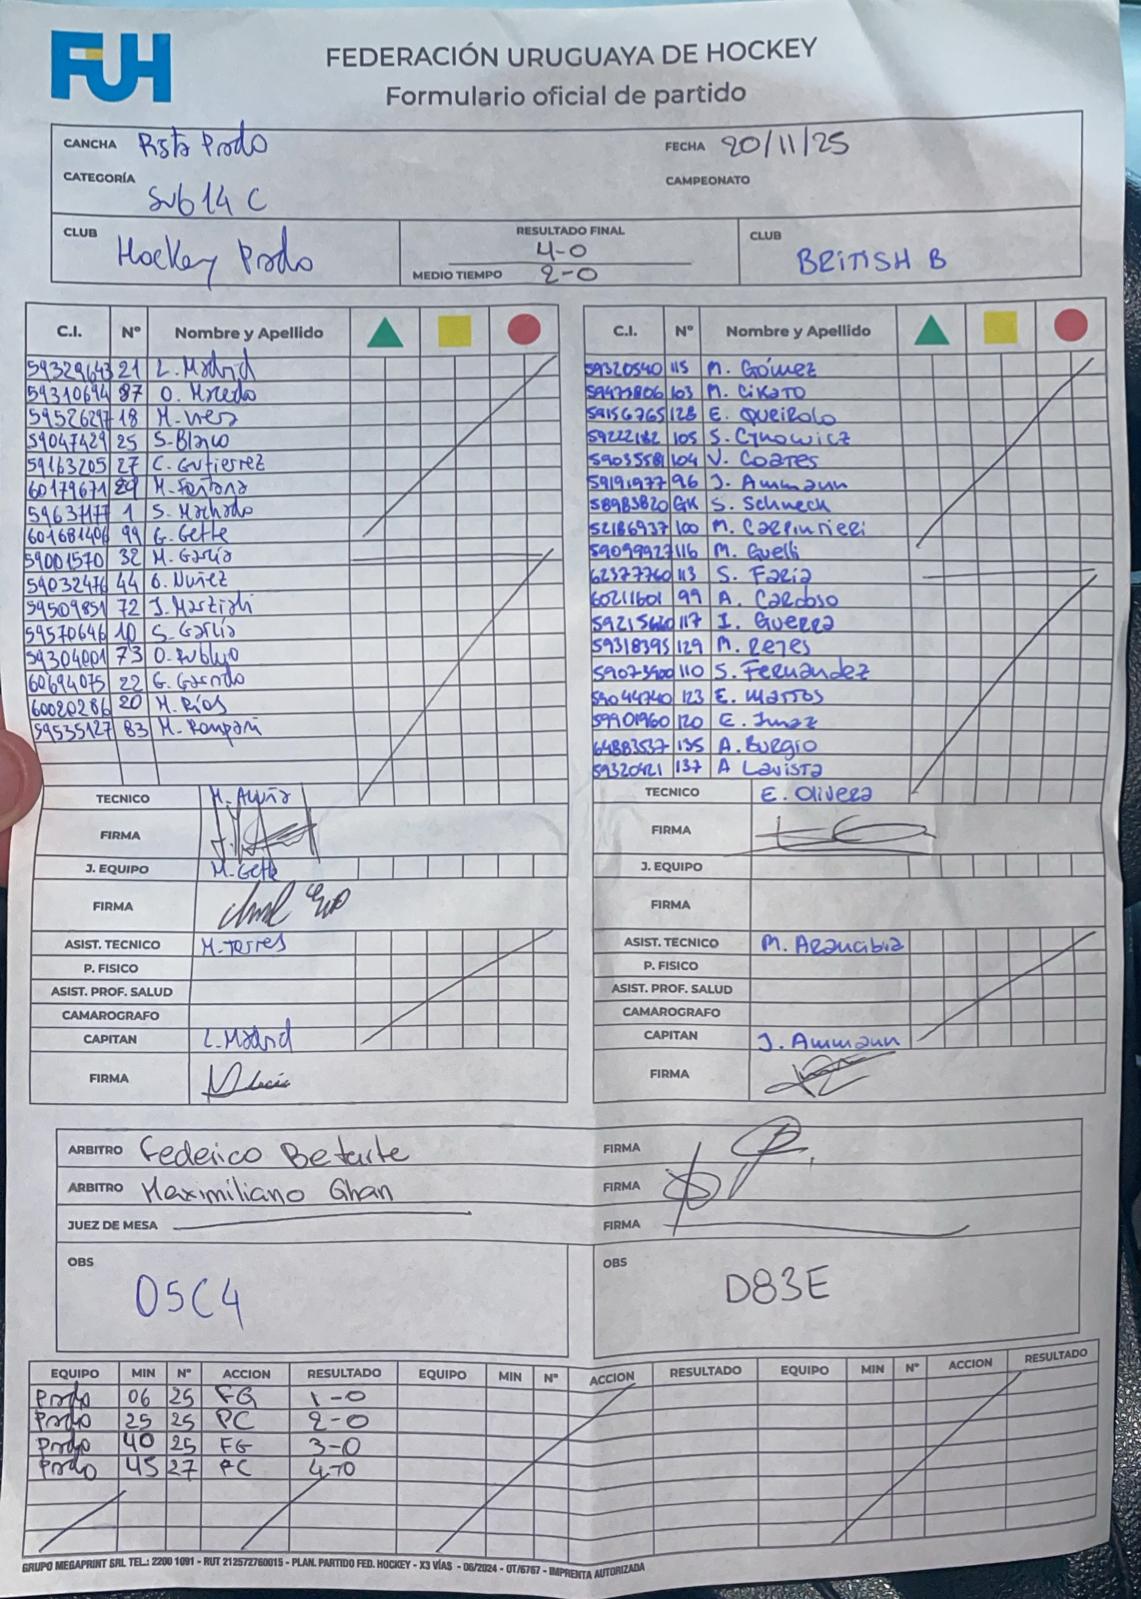 FUH
FEDERACIÓN URUGUAYA DE HOCKEY
Formulario oficial de partido
CANCHA Pista Prado FECHA 20/11/25
CATEGORÍA Sub 14 C CAMPEONATO
CLUB Hockey Prado RESULTADO FINAL 4-0 CLUB BRITISH B
MEDIO TIEMPO 2-0
C.I. Nº Nombre y Apellido
21 L. Madrid
59310694 87 O.
18 M.
59047429 25 S. Blanco
59163205 27 C. Gutierrez
60179671 29 M. Fontana
1 S. Machado
601681406 99 G. Gette
59001570 32 M. García
59032476 44 Nuñez
59509851 72 J. Marziali
59570646 10 S. García
59304001 73 O. Rubbjo
60694075 22 G. Garrido
60020286 20 M. Ríos
59535127 83 M. Rampani
TECNICO M. Acuña
FIRMA
J. EQUIPO M. Gette
FIRMA
ASIST. TECNICO M. Torres
P. FISICO
ASIST. PROF. SALUD
CAMAROGRAFO
CAPITAN L. Madrid
FIRMA
C.I. Nº Nombre y Apellido
59320540 115 M. Gómez
103 M. Cikato
59156765 128 E. Queirolo
59222182 105 S. Cynowicz
59035581 104 V. Coates
59191977 96 J. Ammann
58985820 GK S. Schneck
52186937 100 M.
59099927 116 M. Guelfi
62377760 113 S. Faria
60211601 99 A. Cardoso
117 I. Guerra
59318395 129 M. Reyes
59073900 110 S. Fernandez
59044740 123 E. Martos
59901960 120 E.
64883537 135 A. Burgio
59320421 137 A Lavista
TECNICO E. Olivera
FIRMA
J. EQUIPO
FIRMA
ASIST. TECNICO M. Arancibia
P. FISICO
ASIST. PROF. SALUD
CAMAROGRAFO
CAPITAN J. Ammann
FIRMA
ARBITRO Federico Betarte FIRMA
ARBITRO Maximiliano Ghan FIRMA
JUEZ DE MESA FIRMA
OBS 05C4 OBS D83E
EQUIPO MIN Nº ACCION RESULTADO EQUIPO MIN Nº ACCION RESULTADO EQUIPO MIN Nº ACCION RESULTADO
Prado 06 25 FG 1-0
Prado 25 25 PC 2-0
Prado 40 25 FG 3-0
Prado 45 27 PC 4-0
GRUPO MEGAPRINT SRL TEL.: 2200 1091 - RUT 212572760015 - PLAN. PARTIDO FED. HOCKEY - X3 VÍAS - 06/2024 - OT/6767 - IMPRENTA AUTORIZADA